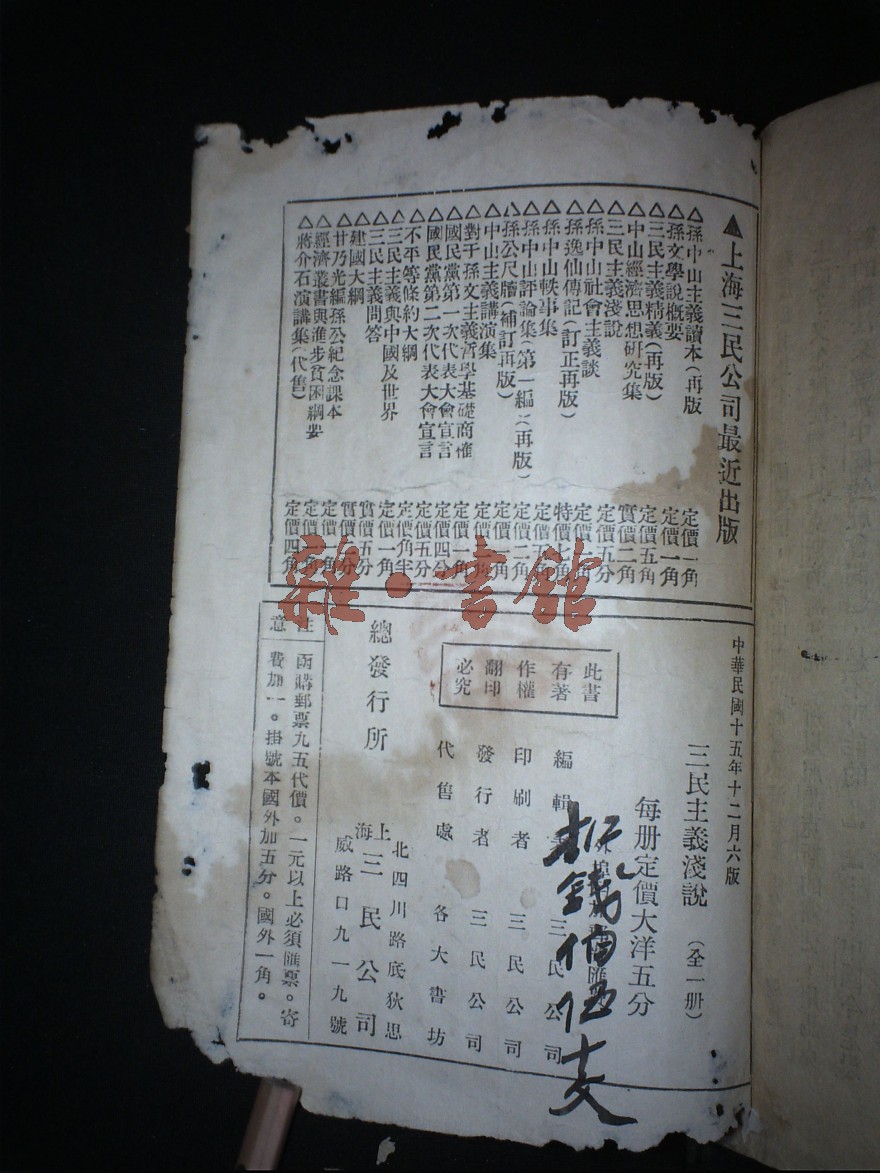 ▲上海三民公司最近出版
△孫中山主義讀本(再版
△孫文學說概要
△三民主義精義(再版)
△中山經濟思想研究集
△三民主義淺說
△孫中山社會主義談
△孫逸仙傳記(訂正再版)
△孫中山軼事集
△孫中山評論集(第一編)(再版)
△孫公尺牘(補訂再版)
△中山主義講演集
△對于孫文主義哲學基礎商榷
△國民黨第一次代表大會宣言
△國民黨第二次代表大會宣言
△不平等條約大綱
△三民主義與中國及世界
△三民主義問答
△建國大綱
△甘乃光編孫公紀念課本
△經濟叢書與進步貧困綱要
△蔣介石演講集(代售)
定價一角
定價一角
定價五角
實價二角
定價五分
特價七角
定價二角
定價一角
定價四分
定價五分
定價角半
定價一角
實價五分
定價四角
中華民國十五年十二月六版
三民主義淺說 (全一册)
每册定價大洋五分
編輯者 三民公司
印刷者 三民公司
發行者 三民公司
代售處 各大書坊
此書
有著
作權
翻印
必究
總發行所
上海三民公司
北四川路底狄思
威路口九一九號
注意
函購郵票九五代價。一元以上必須匯票。寄
費加一。掛號本國外加五分。國外一角。
雜·書館